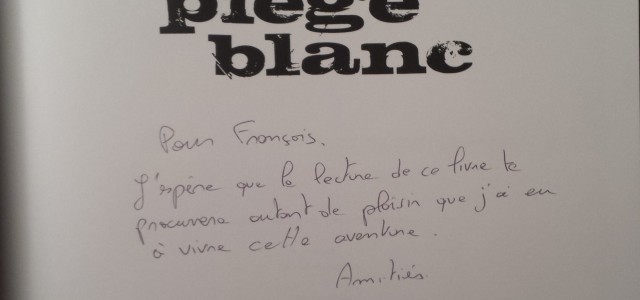 piège
blanc
Pour François.
J'espère que la lecture de ce livre te
procurera autant de plaisir que j'ai eu
à vivre cette aventure.
Amitiés.